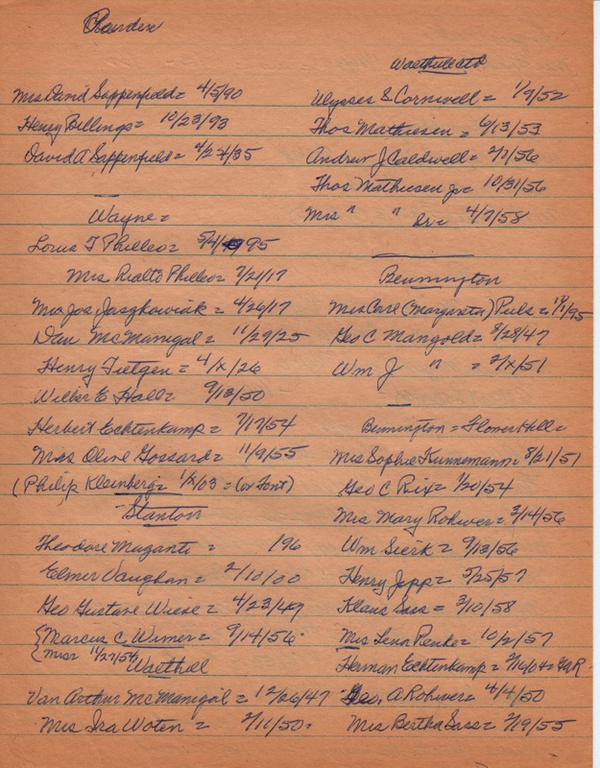 Mrs David Sappenfield = 4/5/90
Henry Billings = 10/23/93
David A Sappenfield = 4/27/35
Wayne =
Lorus T Philleo = 5/4/95
Mrs Rialto Philleo = 7/21/17
Mrs Jos Jaszkowiak = 4/26/17
Dan McManigal = 11/29/25
Henry Tietgen = 4/x/26
Wilber E Hall = 9/13/50
Herbert Echtenkamp = 7/17/54
Mrs Olive Gossard = 11/9/55
(Philip Kleinberg = 1/x/03 = (or Font)
Stanton
Theodore Muganti = 196
Elmer Vaughan = 2/10/00
Geo Gustave Wiese = 4/23/49
{Marcus C. Wimer = 9/14/56
{Mrs " 11/27/54
Waethill
Van Arthur McManigal = 12/26/47
Mrs Ira Woten = 2/11/50 =
Ulysses S Cornwell = 1/9/52
Thos Mathiesen = 6/13/53
Andrew J Caldwell = 2/7/56
Thos Mathiesen Jr = 10/31/56
Mrs " " Sr = 4/7/58
Bennington
Mrs Carl (Margareta) Puls = 11/1/95
Geo C Mangold = 8/28/47
Wm J " = 2/x/51
Bennington = Flower Hill =
Mrs Sophie Kunnemann = 8/21/51
Geo C Rix = 1/20/54
Mrs Mary Rohwer = 3/14/56
Wm Sierk = 9/13/56
Henry Jepp = 5/25/57
Klaus Sass = 3/10/58
Mrs Lena Penke = 10/2/57
Herman Echtenkamp = 2/16/04 = GAR
Geo. A Rohwer = 4/4/50
Mrs Bertha Sass = 2/19/55